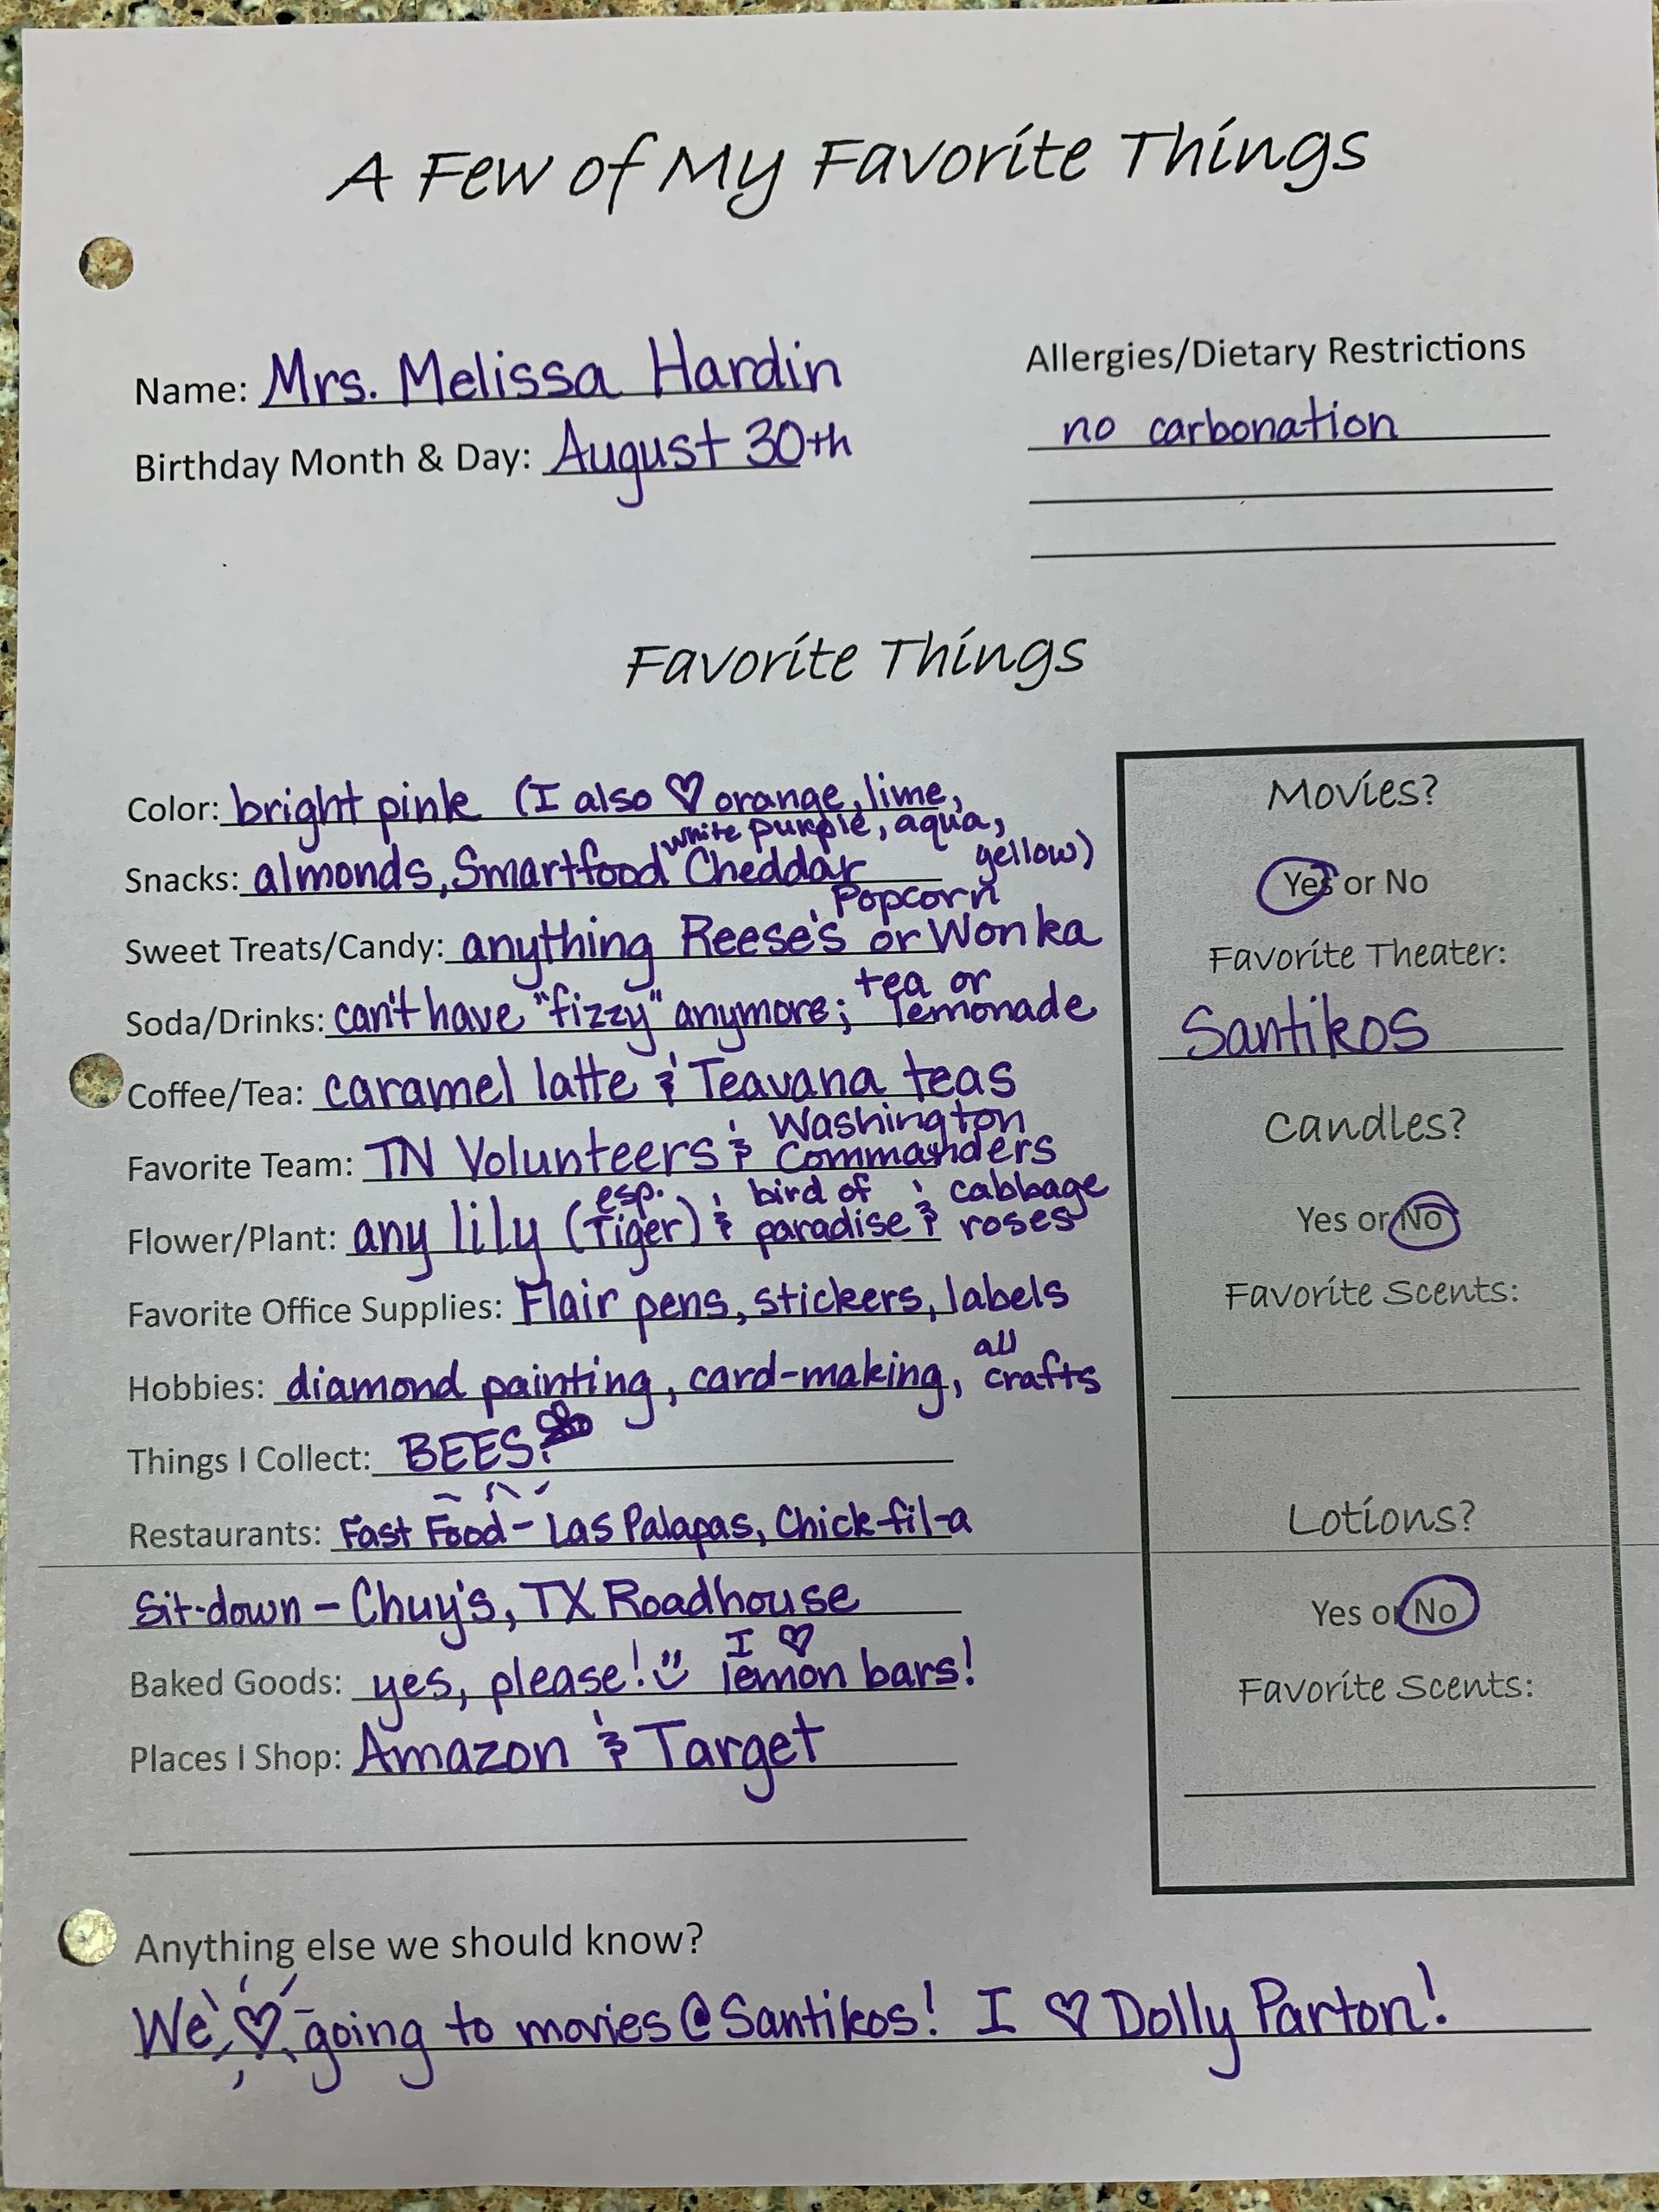 A Few of My Favorite Things
Name: Mrs. Melissa Hardin
Birthday Month & Day: August 30th
Allergies/Dietary Restrictions
no carbonation
Favorite Things
Color: bright pink (I also ♡ orange, lime,
purple, aqua,
yellow)
Snacks: almonds, Smartfood White Cheddar
Popcorn
Sweet Treats/Candy: anything Reese's or Wonka
Soda/Drinks: can't have "fizzy" anymore; tea or
lemonade
Coffee/Tea: caramel latte & Teavana teas
Favorite Team: TN Volunteers & Washington
Commanders
Flower/Plant: any lily (esp. Tiger) & bird of paradise & cabbage roses
Favorite Office Supplies: Flair pens, stickers, labels
Hobbies: diamond painting, card-making, all
crafts
Things I Collect: BEES!
Restaurants: Fast Food - Las Palapas, Chick-fil-a
Sit-down - Chuy's, TX Roadhouse
Baked Goods: yes, please! I ♡ lemon bars!
Places I Shop: Amazon & Target
Movies?
Yes or No
Favorite Theater:
Santikos
Candles?
Yes or No
Favorite Scents:
Lotions?
Yes or No
Favorite Scents:
Anything else we should know?
We ♡ going to movies @ Santikos! I ♡ Dolly Parton!